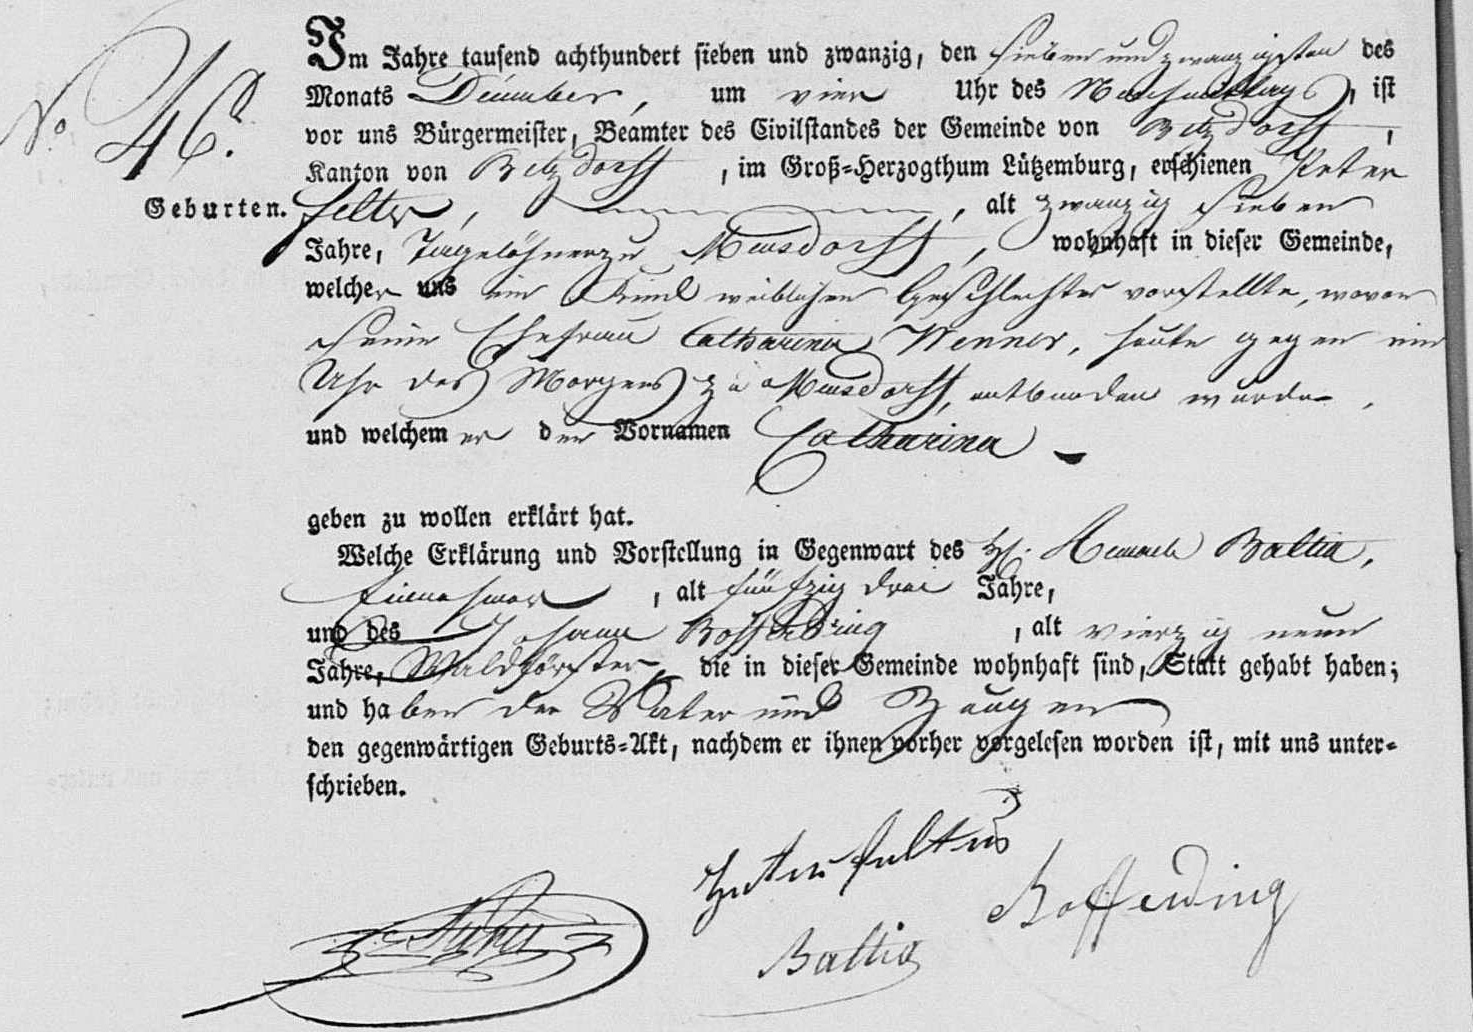 Im Jahre tausend achthundert sieben und zwanzig, den sieben und zwanzigsten des
Monats December, um vier Uhr des Nachmittags, ist
No. 46.
vor uns Bürgermeister, Beamter des Civilstandes der Gemeinde von Betzdorff,
Kanton von Betzdorff, im Groß-Herzogthum Lützemburg, erschienen Peter
Geburten. Feltes, alt zwanzig sieben
Jahre, Tagelöhner zu Mensdorff, wohnhaft in dieser Gemeinde,
welcher uns ein Kind weiblichen Geschlechtes vorstellte, wovon
seine Ehefrau Catharina Wenner, heute gegen ein
Uhr des Morgens zu Mensdorff, entbunden wurde,
und welchem er den Vornamen Catharina
geben zu wollen erklärt hat.
Welche Erklärung und Vorstellung in Gegenwart des H. Baltia,
Einnehmer, alt fünfzig drei Jahre,
und des Johann Bofferding, alt vierzig neun
Jahre, Waldförster, die in dieser Gemeinde wohnhaft sind, Statt gehabt haben;
und haben der Vater und Zeugen
den gegenwärtigen Geburts-Akt, nachdem er ihnen vorher vorgelesen worden ist, mit uns unter-
schrieben.
Peter Feltes
Bofferding
Baltia